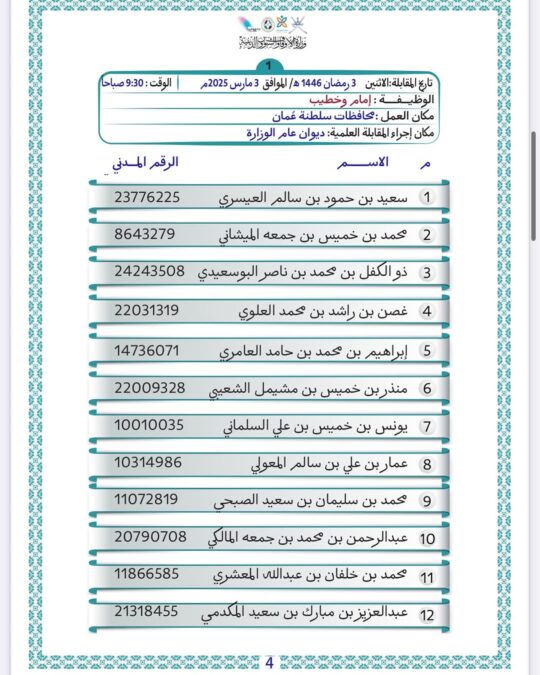 وزارة الأوقاف والشؤون الدينية
1
تاريخ المقابلة: الاثنين 3 رمضان 1446 ه/ الموافق 3 مارس 2025م الوقت : 9:30 صباحا
الوظيفـــة : إمام وخطيب
مكان العمل : محافظات سلطنة عُمان
مكان إجراء المقابلة العلمية: ديوان عام الوزارة
م الاســـــم الرقم المـدني
1 سعيد بن حمود بن سالم العيسري 23776225
2 محمد بن خميس بن جمعه الميشاني 8643279
3 ذو الكفل بن محمد بن ناصر البوسعيدي 24243508
4 غصن بن راشد بن محمد العلوي 22031319
5 إبراهيم بن محمد بن حامد العامري 14736071
6 منذر بن خميس بن مشيمل الشعيبي 22009328
7 يونس بن خميس بن علي السلماني 10010035
8 عمار بن علي بن سالم المعولي 10314986
9 محمد بن سليمان بن سعيد الصبحي 11072819
10 عبدالرحمن بن محمد بن جمعه المالكي 20790708
11 محمد بن خلفان بن عبدالله المعشري 11866585
12 عبدالعزيز بن مبارك بن سعيد المكدمي 21318455
4